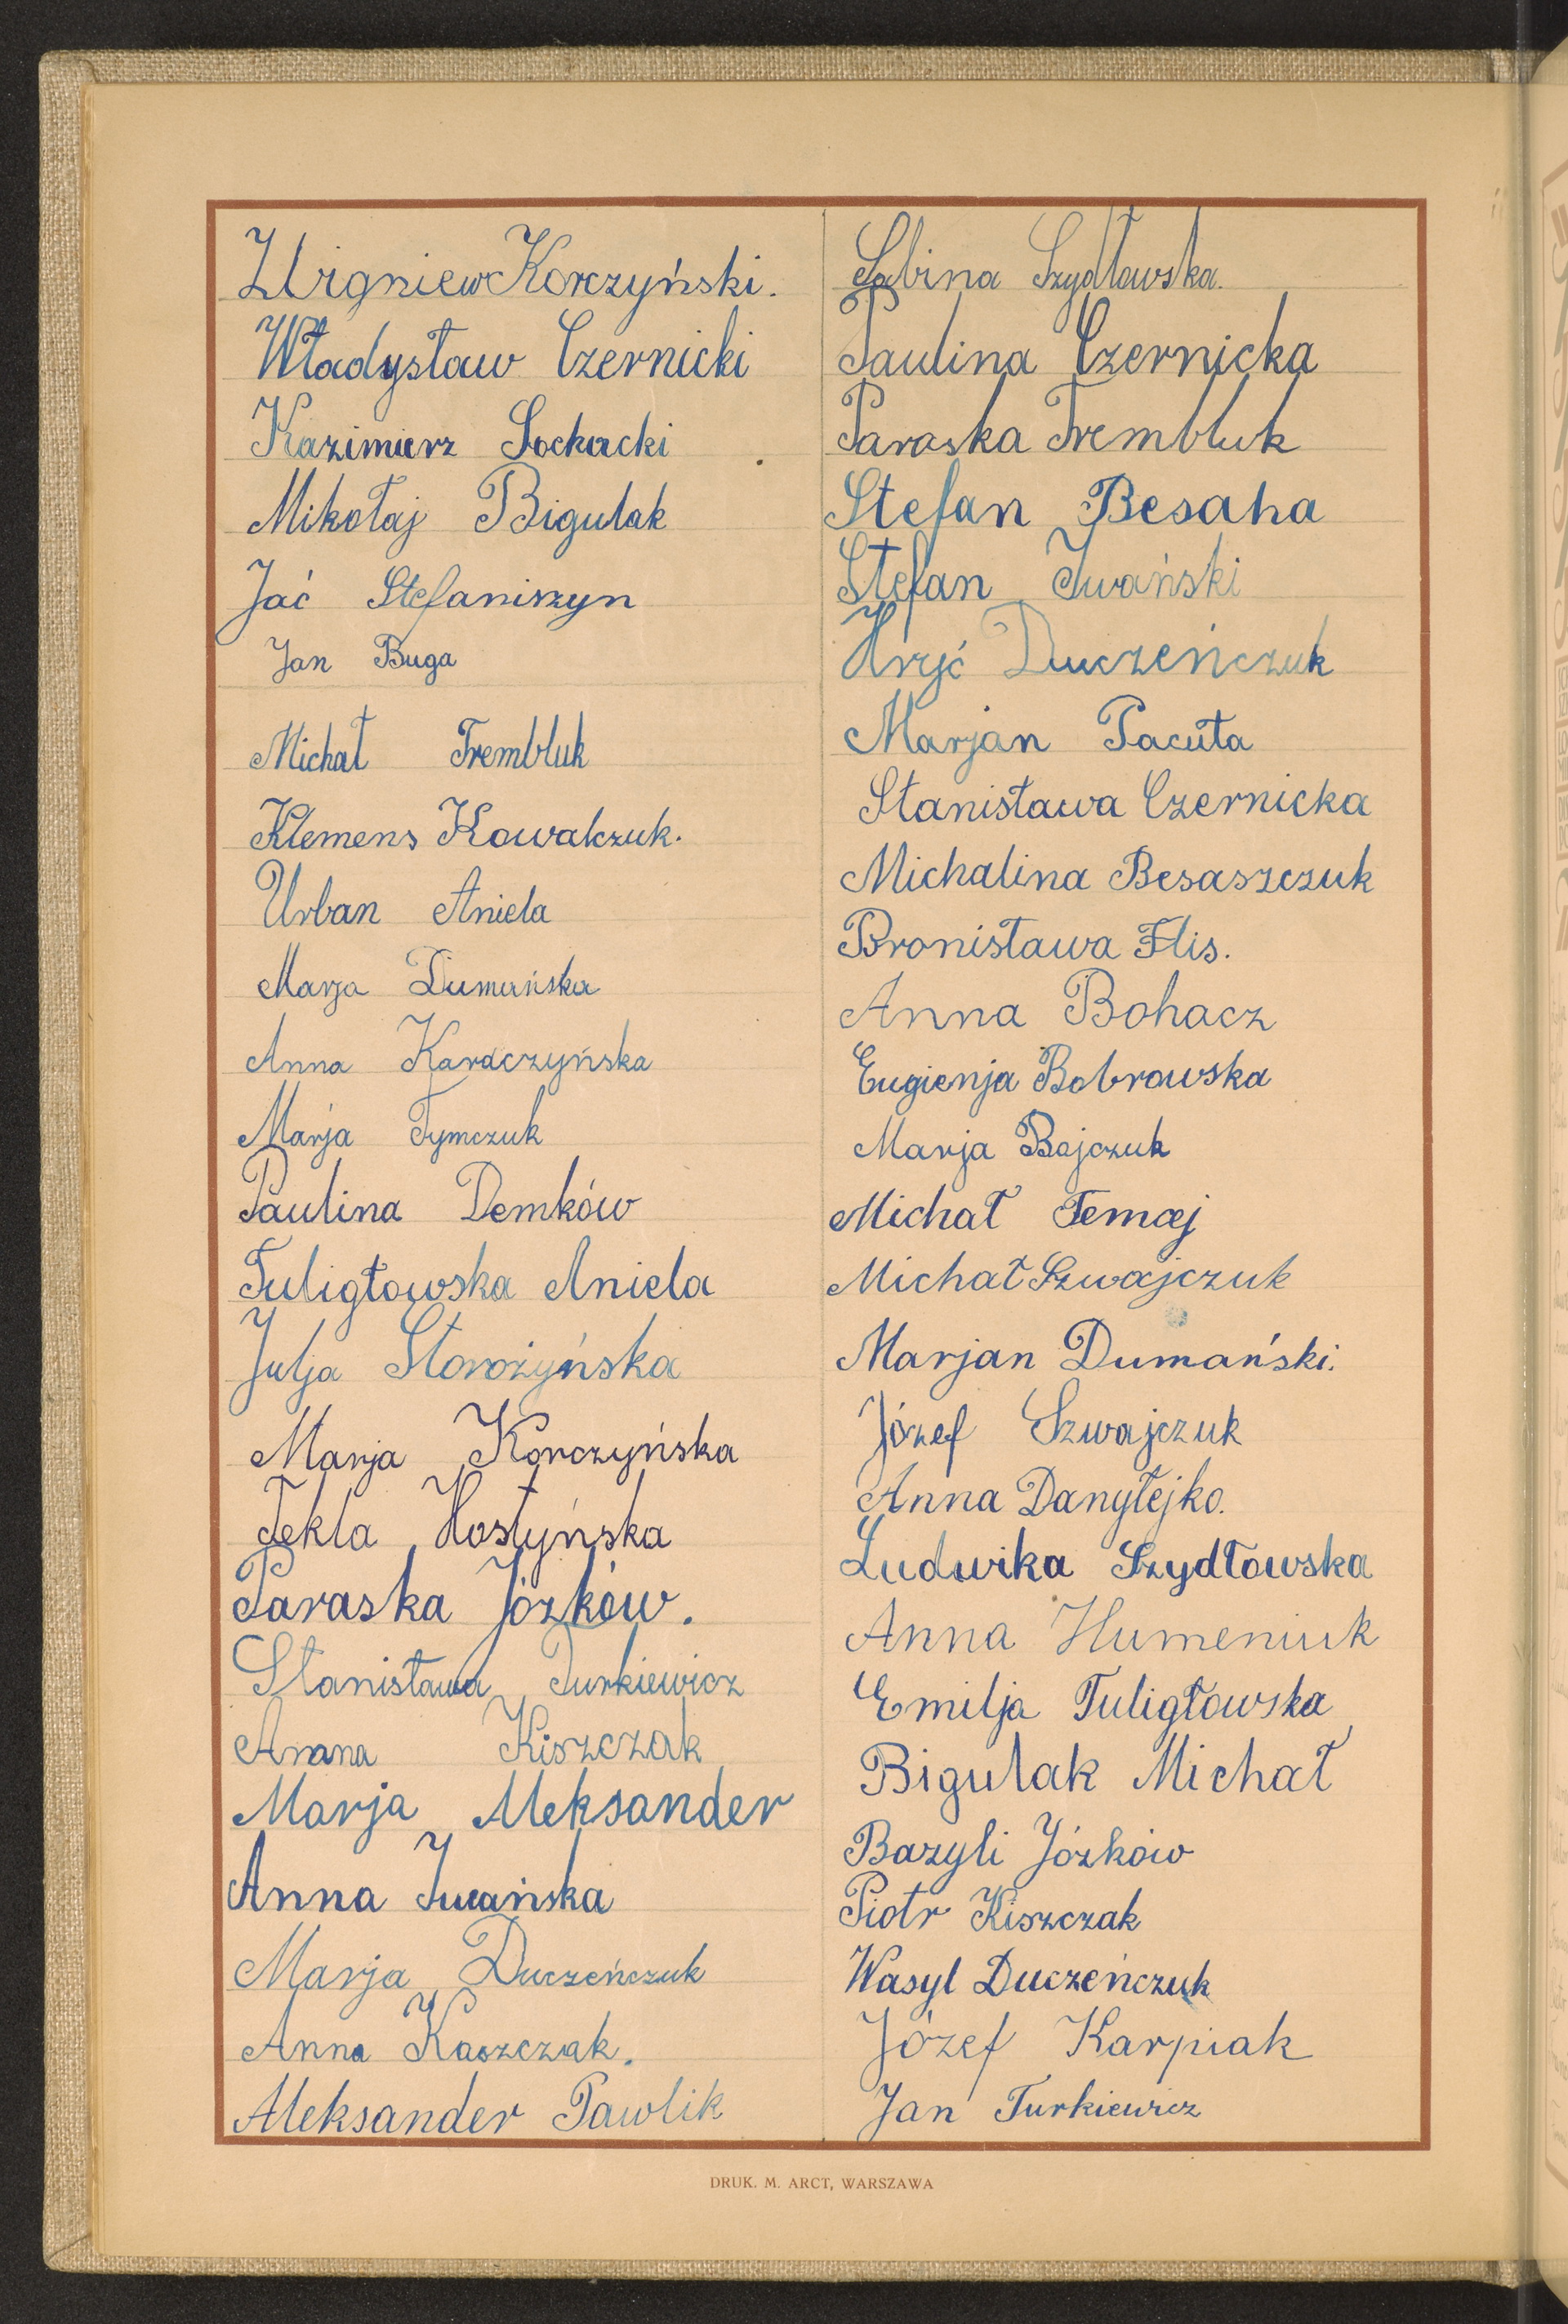 Zbigniew Korczyński.
Władysław Czernicki
Kazimierz Sockacki
Mikołaj Bigulak
Jać Stefaniszyn
Jan Buga
Michał Trembluk
Klemens Kowalczuk.
Urban Aniela
Marja Dumańska
Anna Karaczyńska
Marja Tymczuk
Paulina Demków
Tuligłowska Aniela
Julja Storożyńska
Marja Korczyńska
Tekla Hostyńska
Paraska Józków.
Stanisława Turkiewicz
Anna Kiszczak
Marja Aleksander
Anna Iwańska
Marja Duczeńczuk
Anna Kaszczak.
Aleksander Pawlik
Sabina Szydłowska.
Paulina Czernicka
Paraska Trembluk
Stefan Besaha
Stefan Iwański
Hryć Duczeńczuk
Marjan Pacuła
Stanisława Czernicka
Michalina Besaszczuk
Bronisława Flis.
Anna Bohacz
Eugienja Bobrowska
Marja Bojczuk
Michał Temaj
Michał Szwajczuk
Marjan Dumański.
Józef Szwajczuk
Anna Danyłejko.
Ludwika Szydłowska
Anna Humeniuk
Emilja Tuligłowska
Bigulak Michał
Bazyli Józków
Piotr Kiszczak
Wasyl Duczeńczuk
Józef Karpiak
Jan Turkiewicz
DRUK. M. ARCT, WARSZAWA